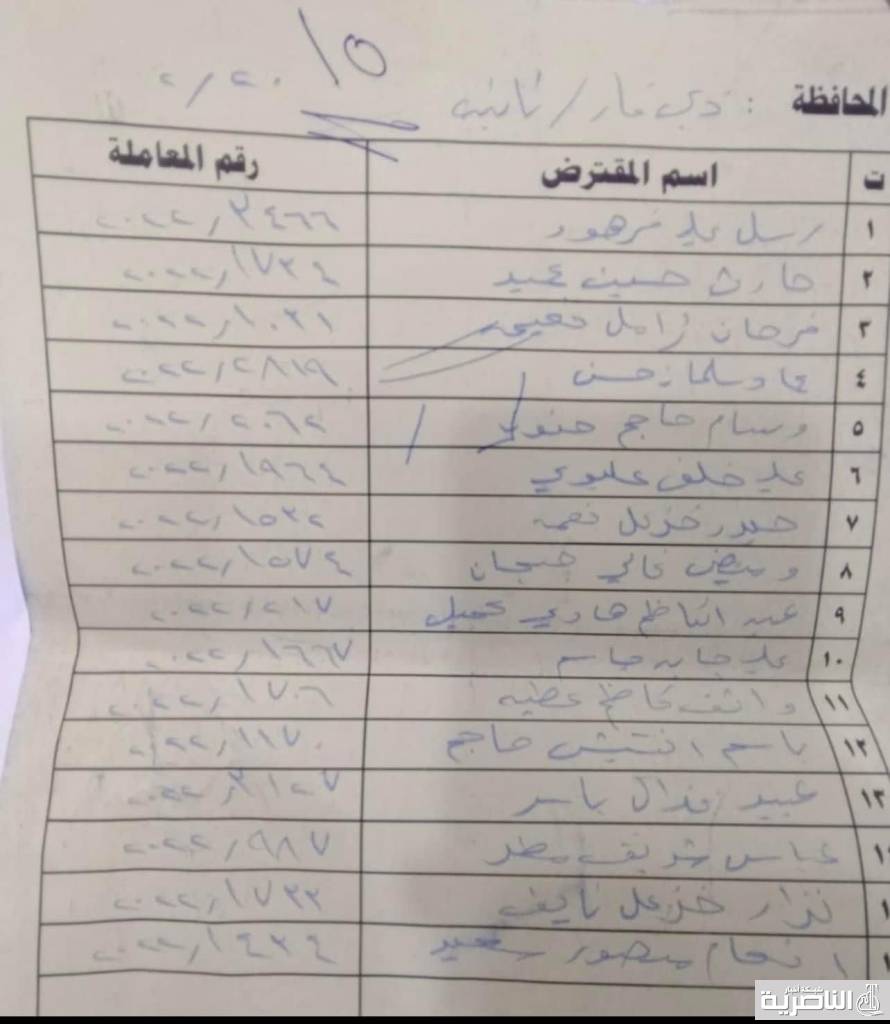 ١٥
المحافظة : ذي قار / ثانية
ت اسم المقترض رقم المعاملة
١ رسل علي فرهود ٢٠٢٢/٣٤٦٦
٢ حارث حسين عبيد ٢٠٢٢/١٧٣٤
٣ فرحان زامل ٢٠٢٢/١٠٢١
٤ سلمان حسن ٢٠٢٢/٢٨١٩
٥ وسام حاجم ٢٠٢٢/٢٠٦٢
٦ علي خلف عليوي ٢٠٢٢/١٩٦٤
٧ حيدر خزعل نعمه ٢٠٢٢/١٥٣٢
٨ وميض غالي ٢٠٢٢/١٥٧٤
٩ عبد الكاظم هادي ٢٠٢٢/٢١٧
١٠ علي جابر جاسم ٢٠٢٢/١٦٦٧
١١ واثق كاظم عطيه ٢٠٢٢/١٧٠٦
١٢ باسم حاجم ٢٠٢٢/١١٧٠
١٣ عبيد ياسر ٢٠٢٢/٣١٠٧
عباس شريف مطر ٢٠٢٢/٩٨٧
نزار خزعل نايف ٢٠٢٢/١٧٣٣
انعام منصور سعيد ٢٠٢٢/١٤٣٤
شبكة أخبار
الناصرية